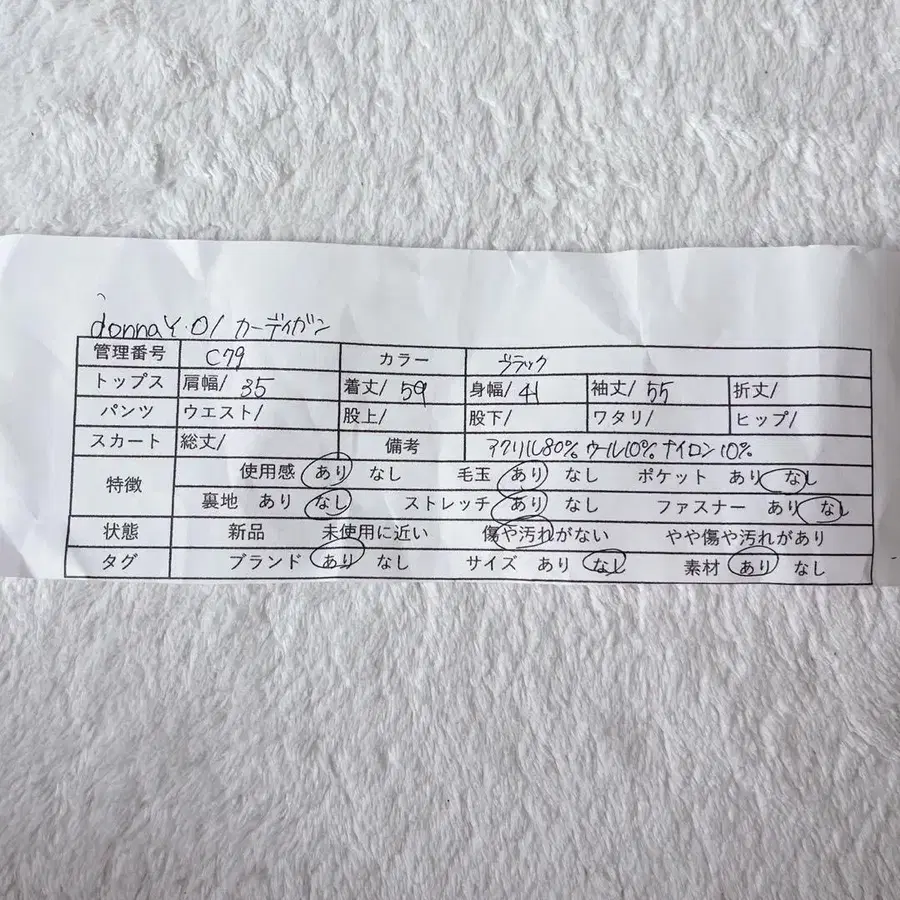 donnaY.O/カーディガン
管理番号 C79 カラー ブラック
トップス 肩幅/ 35 着丈/ 59 身幅/ 41 袖丈/ 55 折丈/
パンツ ウエスト/ 股上/ 股下/ ワタリ/ ヒップ/
スカート 総丈/ 備考 アクリル80% ウール10% ナイロン10%
特徴 使用感 あり なし 毛玉 あり なし ポケット あり なし
裏地 あり なし ストレッチ あり なし ファスナー あり なし
状態 新品 未使用に近い 傷や汚れがない やや傷や汚れがあり
タグ ブランド あり なし サイズ あり なし 素材 あり なし